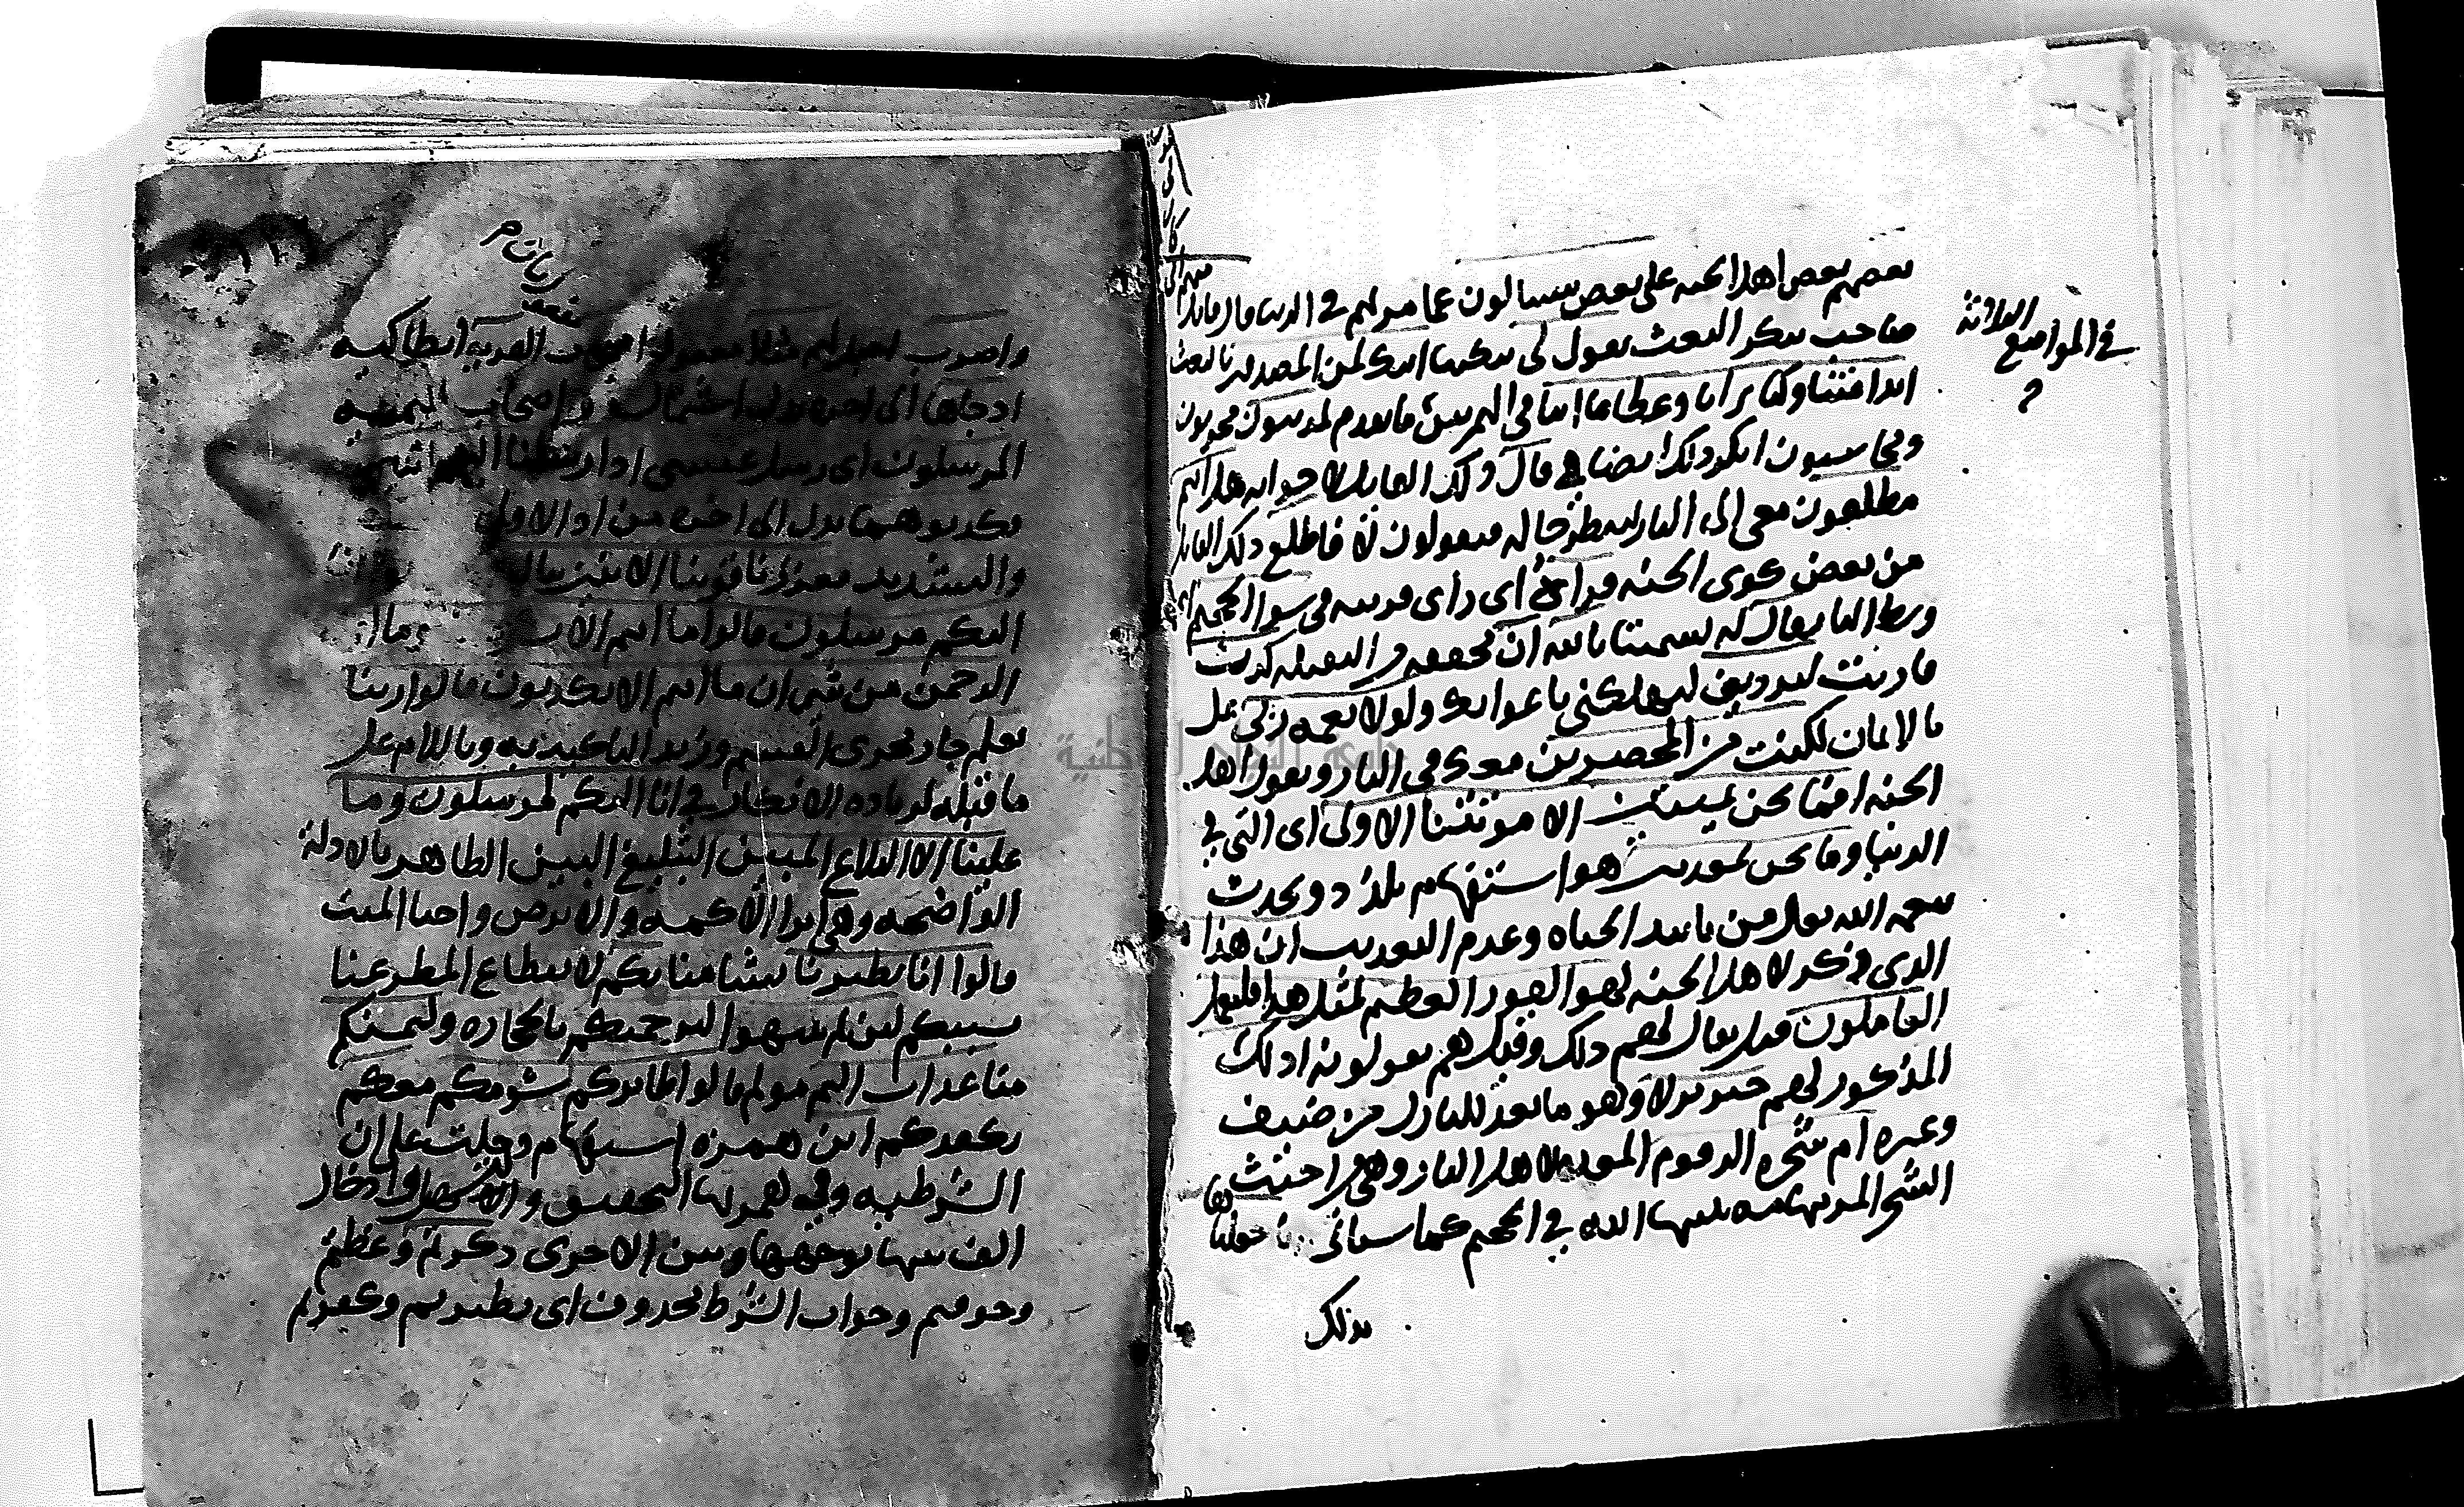 بعضهم بعض اهل الجنه على بعض يتسالون عما مر لهم في الدنيا قال قايل
صاحب ينكر البعث يقول لي تبكيتا ائنك لمن المصدقين بالبعث
ائذا متنا وكنا ترابا وعظاما ائنا في الهمزتين ما تقدم لمدينون مجزيون
ومحاسبون انكر ذلك ايضا قال ذلك القايل لاخوانه هل انتم
مطلعون معي الى النار لننظر حاله فيقولون لا فاطلع ذلك القايل
من بعض كوى الجنه فراه اي راى قرينه في سوا الجحيم اي
وسط النار قال له تشميتا تالله ان مخففه من الثقيله كدت
قاربت لتردين لتهلكني باغوايك ولولا نعمه ربي على
بالايمان لكنت من المحضرين معك في النار ويقول اهل
الجنه افما نحن بميتين الا موتتنا الاولى اي التي في
الدنيا وما نحن بمعذبين هو استفهام تلذذ وتحدث
بنعمه الله تعالى من تاييد الحياه وعدم التعذيب ان هذا
الذي ذكر لاهل الجنه لهو الفوز العظيم لمثل هذا فليعمل
العاملون قيل يقال لهم ذلك وقيل هم يقولونه اذلك
المذكور لهم خير نزلا وهو ما يعد للنازل من ضيف
وغيره ام شجره الزقوم المعده لاهل النار وهي من اخبث
الشجر المر بتهامه ينبتها الله في الجحيم كما سياتي
بذلك
في المواضع
الثلاثة
واضرب اجعل لهم مثلا مفعول اصحاب القريه انطاكيه
اذ جاها الى اخره بدل اشتمال من اصحاب القريه
المرسلون اي رسل عيسى اذ ارسلنا اليهم اثنين
فكذبوهما بدل الى اخره من اذ الاولى
والتشديد فعززنا قوينا الاثنين بثالث فقالوا انا
اليكم مرسلون قالوا ما انتم الا بشر وما انزل
الرحمن من شي ان ما انتم الا تكذبون قالوا ربنا
يعلم جار مجرى القسم وزيد التاكيد به وباللام على
ما قبله لزياده الانكار في انا اليكم لمرسلون وما
علينا الا البلاغ المبين التبليغ البين الظاهر بالادلة
الواضحه وهي ابرا الاكمه والابرص واحيا الميت
قالوا انا تطيرنا تشامنا بكم لانقطاع المطر عنا
بسببكم لين لم تنتهوا لنرجمنكم بالحجاره وليمسنكم
منا عذاب اليم مولم قالوا طايركم شومكم معكم
بكفركم اين همزه استفهام دخلت على ان
الشرطيه وفي همزتها التحقيق والتسهيل وادخال
الف بينها بوجهيها وبين الاخرى ذكرتم وعظتم
وخوفتم وجواب الشرط محذوف اي تطيرتم وكفرتم